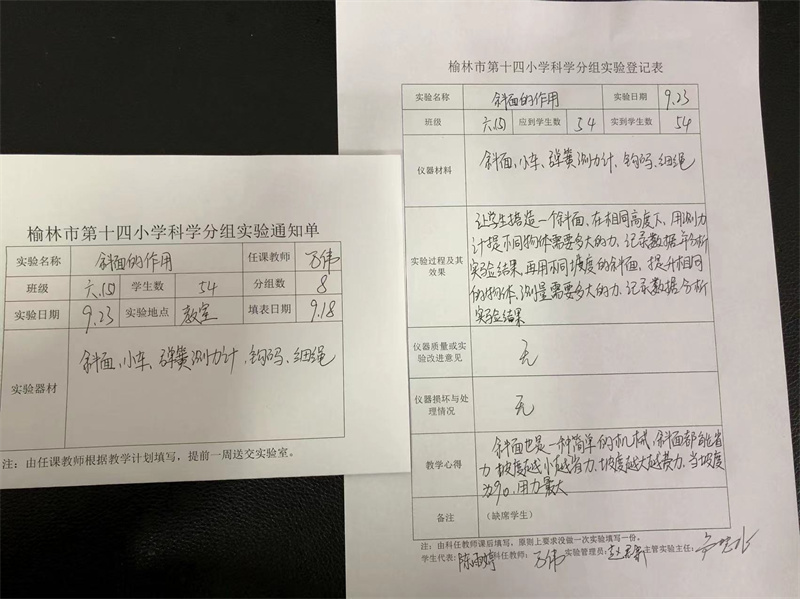 榆林市第十四小学科学分组实验通知单
实验名称 斜面的作用 任课教师
班级 六.(5) 学生数 54 分组数 8
实验日期 9.23 实验地点 教室 填表日期 9.18
实验器材 斜面、小车、弹簧测力计、钩码、细绳
注：由任课教师根据教学计划填写，提前一周送交实验室。
榆林市第十四小学科学分组实验登记表
实验名称 斜面的作用 实验日期 9.23
班级 六.(5) 应到学生数 54 实到学生数 54
仪器材料 斜面、小车、弹簧测力计、钩码、细绳
实验过程及其效果
让学生搭造一个斜面、在相同高度下、用测力
计提不同物体需要多大的力、记录数据并分析
实验结果、再用不同坡度的斜面、提升相同
的物体、测量需要多大的力、记录数据分析
实验结果
仪器质量或实验改进意见 无
仪器损坏与处理情况 无
教学心得
斜面也是一种简单的机械、斜面都能省
力、坡度越小越省力、坡度越大越费力、当坡度
为90、用力最大
备注 （缺席学生）
注：由科任教师课后填写，原则上要求没做一次实验填写一份。
学生代表：陈雨婷 科任教师： 实验管理员： 主管实验主任：